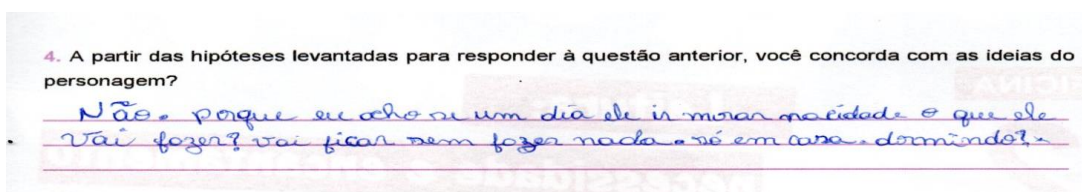 4. A partir das hipóteses levantadas para responder à questão anterior, você concorda com as ideias do
personagem?
Não. porque eu acho se um dia ele ir morar nacidade o que ele
vai fazer? vai ficar sem fazer nada. só em casa. dormindo?.